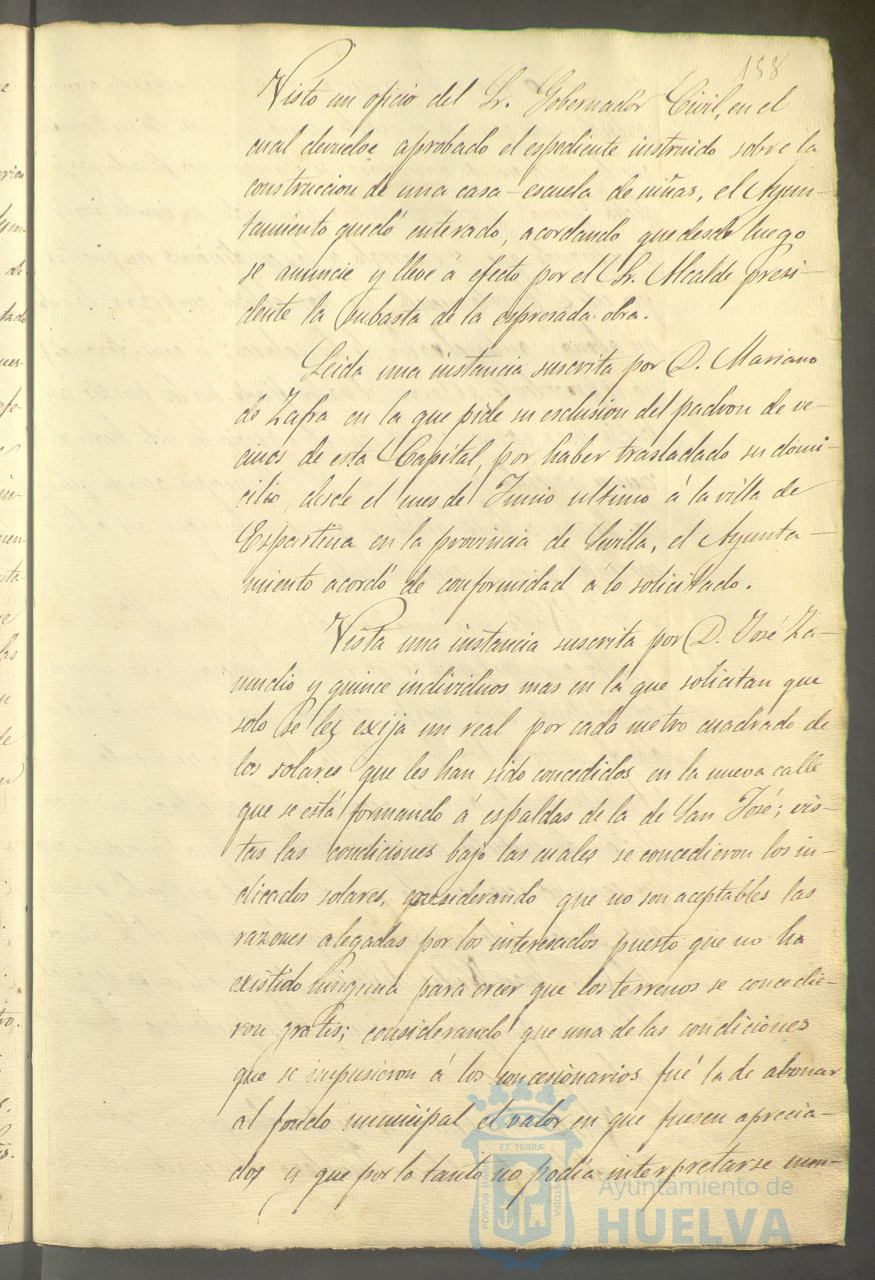 158
Visto un oficio del Sr. Gobernador Civil, en el
cual devuelve aprobado el espediente instruido sobre la
construccion de una casa-escuela de niñas, el Ayun-
tamiento quedó enterado, acordando que desde luego
se anuncie y lleve á efecto por el Sr. Alcalde presi-
dente la subasta de la espresada obra.
Leida una instancia suscrita por D. Mariano
de Zafra en la que pide su esclusion del padron de ve-
cinos de esta Capital, por haber trasladado su domi-
cilio, desde el mes de Junio ultimo á la villa de
Espartina en la provincia de Sevilla, el Ayunta-
miento acordó de conformidad á lo solicitado.
Vista una instancia suscrita por D. José Za-
mudio y quince individuos mas en la que solicitan que
solo se les exija un real por cada metro cuadrado de
los solares que les han sido concedidos en la nueva calle
que se está formando á espaldas de la de San José; vis-
tas las condiciones bajo las cuales se concedieron los in-
dicados solares, considerando que no son aceptables las
razones alegadas por los interesados puesto que no ha
existido ninguna para creer que los terrenos se concedie-
ron gratis; considerando que una de las condiciones
que se impusieron á los concesionarios fué la de abonar
al fondo municipal el valor en que fuesen aprecia-
dos y que por lo tanto no podia interpretarse nun-
ET TERRÆ
PORTUS MARIS
CUSTODIA
Ayuntamiento de
HUELVA